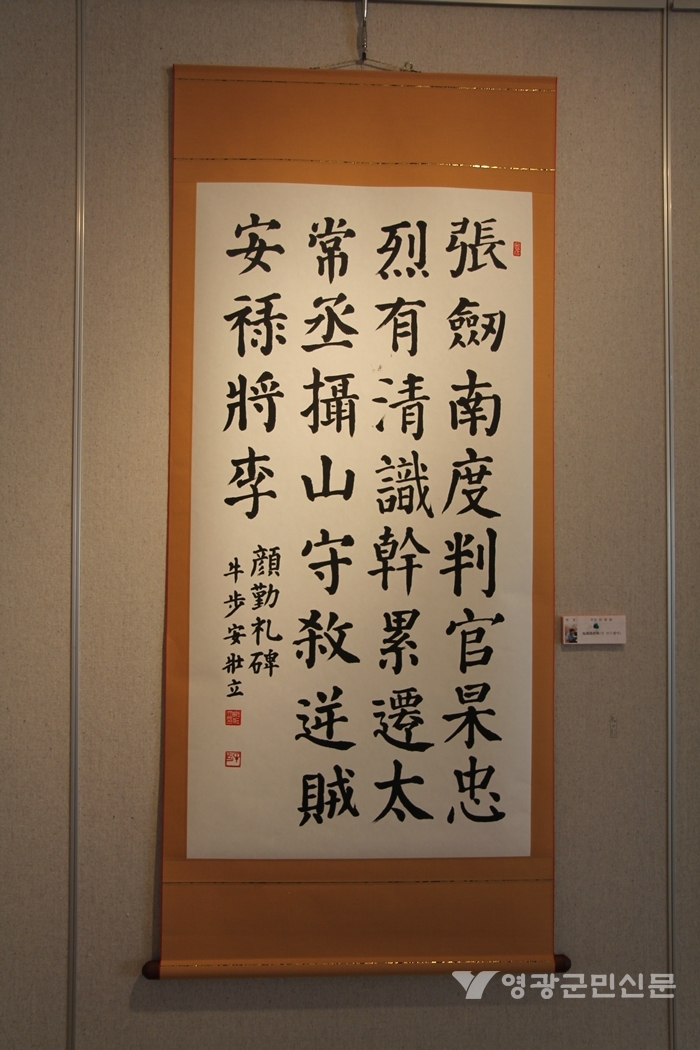 張劔南度判官杲忠
烈有清識幹累遷太
常丞攝山守敎逆賊
安祿將李
顔勤礼碑
牛步安壯立
영광군민신문